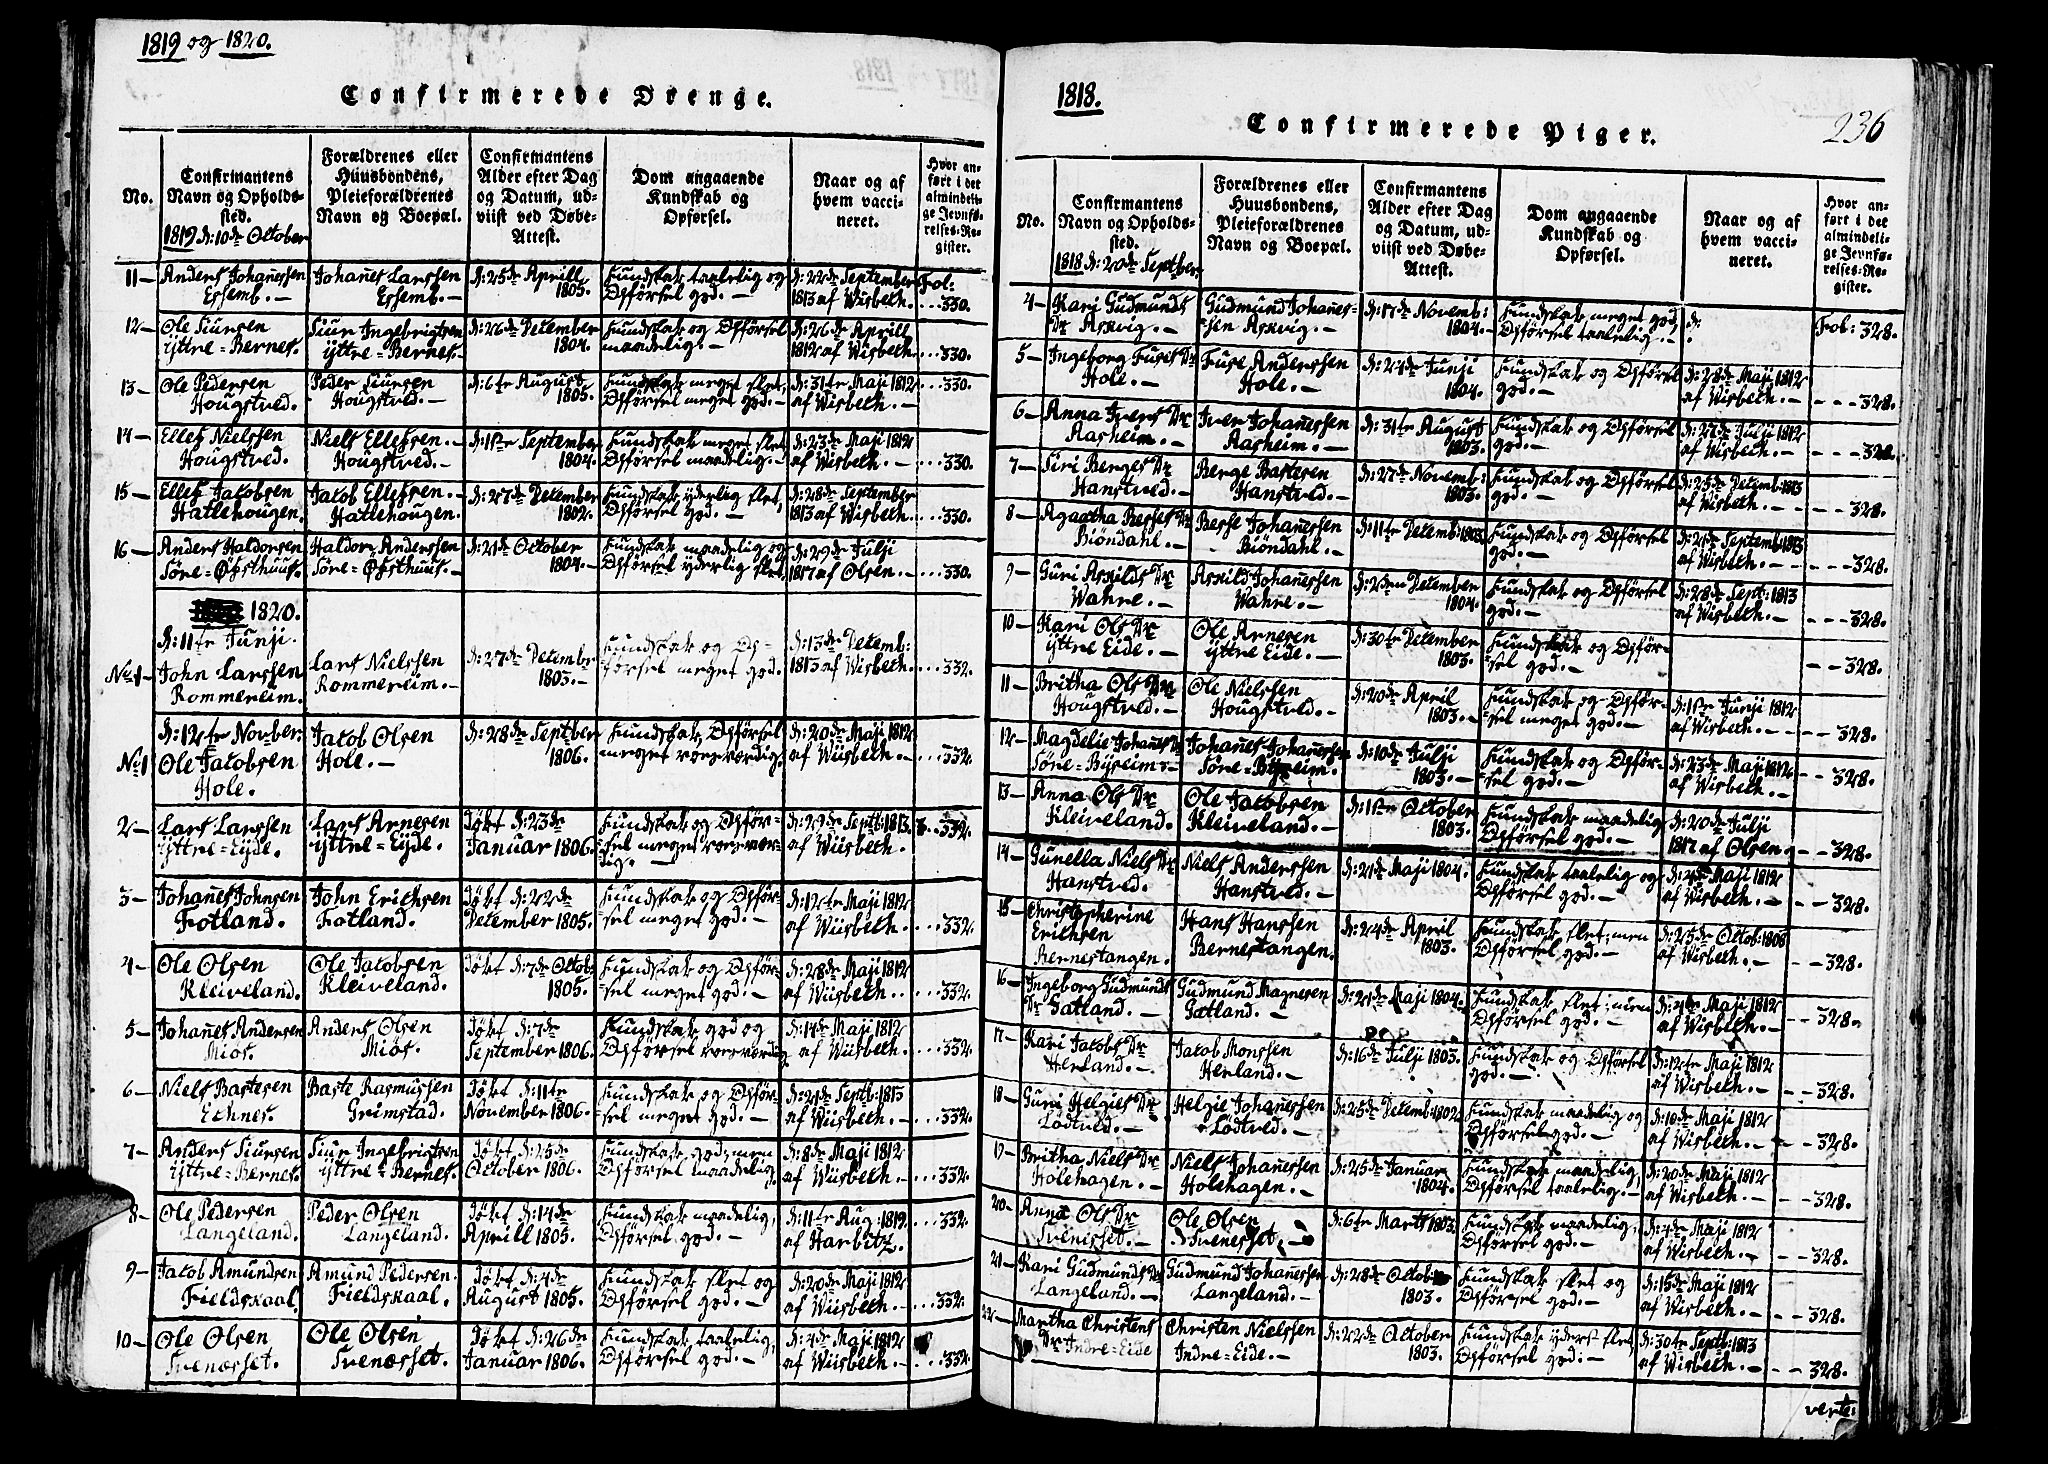 1819 og 1820.
Confirmerede Drenge.
No.
Confirmantens Navn og Opholds-sted.
Forældrenes eller Huusbondens, Pleieforældrenes Navn og Boepæl.
Confirmantens Alder efter Dag og Datum, ud-viist ved Døbe-Attest.
Dom angaaende Kundskab og Opførsel.
Naar og af hvem vacci-neret.
Hvor an-ført i det almindeli-ge Jevnfø-relses-Re-gister.
1819 d: 10de October
11 – Anders Johanessen Essemb. – Johanes Larssen Essemb. – d: 25de Aprill 1805. Kundskab taalelig og Opførsel god. – d: 22de September 1813 af Wisbech. Fol: 330.
12 – Ole Siursen Yttre=Bernes. Siur Ingebrigtsen Yttre=Bernes. – d: 26de December 1804. Kundskab og Opførsel maadelig. – d: 26de Aprill 1812 af Wisbech. 330.
13 – Ole Pedersen Hougstved. Peder Siursen Hougstved. – d: 6te August 1805. Kundskab meget slet, Opførsel meget god. – d: 31te Maji 1812 af Wisbech. – 330.
14 – Ellef Nielssen Hougstved. Niels Ellefsen. – Hougstved. – d: 1ste September 1804. Kundskab meget slet Opførsel maadelig. – d: 23de Maji 1812 af Wisbech. – 330.
15 – Ellef Jacobsen Hatlehougen. Jacob Ellefsen. – Hatlehougen. – d: 27de December 1802. Kundskab yderlig slet, Opførsel god. – d: 28de September 1813 af Wisbech. 330.
16 – Anders Haldorsen Søre=Østhuus. Haldor Anderssen Søre=Østhuus. – d: 21de October 1804. – Kundskab maadelig og Opførsel yderlig slet, d: 29de Julji 1817 af Olsen. 330.
1820.
d: 11te Junji.
No 1 – John Larssen Rommereim. Lars Nielssen Rommereim. – d: 27de December 1803. – Kundskab og Op-førsel meget god. d: 13de Decemb: 1813 af Wisbech. 332.
d: 12te Novber:
No 1 Ole Jacobsen Hole. Jacob Olsen Hole. – d: 28de Septber 1806. Kundskab, Opførsel meget roesværdig. d: 20de Maji 1812 af Wiisbech. – 332.
2 – Lars Larssen Yttre=Eyde. Lars Arnesen Yttre=Eyde. Døbt d: 23de Januar 1806. Kundskab og Opfør-sel meget roesvær-dig. – d: 29de Septb: 1813. af Wiisbech. 332.
3 – Johanes Johnsen Fotland. John Erichsen Fotland. Døbt d: 22de December 1805. Kundskab og Opfør-sel meget god. – d: 12te Maji 1812 af Wiisbech. 332.
4 – Ole Olsen Kleiveland. Ole Jacobsen Kleiveland. Døbt d: 7de Octob: 1805. Kundskab og Opfør-sel meget god. – d: 28de Maji 1812 af Wiisbech. 332.
5 – Johanes Andersen Miøs. Anders Olsen Miøs. Døbt d: 7de September 1806. Kundskab god og Opførsel roesværdig d: 14de Maji 1812 af Wiisbech. 332.
6 – Niels Bastesen Echnes. Baste Rasmussen Grimstad. Døbt d: 11te November 1806. Kundskab og Opfør-sel meget god. – d: 21de Septb: 1813 af Wiisbech. 332.
7 – Anders Siursen Yttre=Bernes. Siur Ingebrigtsen Yttre=Bernes. Døbt d: 25de October 1806. Kundskab god, men Opførsel maadelig. d: 8de Maji 1812 af Wiisbech. 332.
8 – Ole Pedersen Langeland. Peder Olsen Langeland. Døbt d: 14de Aprill 1805. Kundskab maadelig, Opførsel god. – d: 11te Aug: 1812. af Harbitz. 332.
9 – Jacob Amundsen Fieldskaal. Amund Pedersen. Fieldskaal. Døbt d: 4de August 1805. Kundskab slet og Opførsel god. – d: 20de Maji 1812 af Wiisbech. 332.
10 – Ole Olsen Svenæsset. Ole Olsen Svenæsset. Døbt d: 26de Januar 1806. Kundskab taalelig, Opførsel god. – d: 4de Maji 1812 af Wiisbech. 332.
1818.
Confirmerede Piger.
236
No.
Confirmantens Navn og Opholds-sted.
Forældrenes eller Huusbondens, Pleieforældrenes Navn og Boepæl.
Confirmantens Alder efter Dag og Datum, ud-viist ved Døbe-Attest.
Dom angaaende Kundskab og Opførsel.
Naar og af hvem vacci-neret.
Hvor an-ført i det almindeli-ge Jevnfø-relses-Re-gister.
1818 d: 20de Septber
4 – Kari Gudmunds Dr Askvig. – Gudmund Johanes-sen Askvig. – d: 17de Novemb: 1804. – Kundskab meget god, Opførsel taalelig. – d: Fol: 328.
5 – Ingeborg Fuses Dr Hole. – Fuse Anderssen Hole. – d: 24de Junji 1804. Kundskab og Opførsel god. – d: 28de Maji 1812 af Wisbech. – 328.
6 – Anna Ivers Dr Aasheim. – Iver Johanessen Aasheim. – d: 31te August 1803. Kundskab og Opførsel god. – d: 27de Julji 1812 af Wisbech. – 328.
7 – Siri Berges Dr Hanstved. – Berge Bastesen Hanstved. – d: 27de Novemb: 1803. Kundskab og Opførsel god. – d: 25de Decemb: 1813 af Wisbech. – 328.
8 – Agatha Besses Dr Biöndahl. – Besse Johanessen Biöndahl. – d: 11te Decemb: 1803. Kundskab og Opførsel god. – d: 21de Septemb: 1813 af Wisbech. – 328.
9 – Guri Askilds Dr Wahne. – Askild Johanessen Wahne. – d: 23de December 1804. Kundskab og Opførsel god. – d: 28de Sept: 1813 af Wisbech. – 328.
10 – Kari Ols Dr Yttre Eide. – Ole Arnesen Yttre Eide. – d: 30te December 1803. Kundskab og Opfør-sel god. – 328.
11 – Britha Ols Dr Hougstved. – Ole Nielssen Hougstved. – d: 20de April 1803. – Kundskab og Opfør-sel meget god. – d: 1ste Junji 1812 af Wisbech. – 328.
12 – Magdelie Johanes Dr Søre=Byseim – Johanes Johanessen Søre=Byseim. d: 10de Julji 1803. – Kundskab og Opfør-sel god. – d: 23de Maji 1812 af Wisbech. – 328.
13 – Anna Ols Dr Kleiveland. Ole Jacobsen Kleiveland. – d: 1ste October 1803. – Kundskab maadelig, Opførsel god. – d: 20de Julji 1817 af Olsen. 328.
14 – Gunella Niels Dr Hanstved. – Niels Anderssen Hanstved. – d: 21de Maji 1804. Kundskab taalelig og Opførsel god. – d: 2de Maji 1812 af Wisbech. – 328.
15 – Christopherine Erichsen Bernestangen. Hans Hanssen Bernestangen. d: 24de April 1803. Kundskab slet, men Opførsel god. – d: 25de Octob: 1806 af Wisbech. – 328.
16 – Ingeborg Gudmunds Dr Gatland. – Gudmund Magnesen Gatland. – d: 21de Maji 1804. Kundskab slet; men Opførsel god. – d: 4de Maji 1812 af Wisbech. – 328.
17 – Kari Jacobs Dr Herland. – Jacob Monssen Herland. – d: 16de Julji 1803. Kundskab og Opførsel god. – d: 12te Maji 1812 af Wisbech. – 328.
18 – Guri Helgies Dr Lödtved. Helgie Johanessen Lödtved. – d: 25de Decemb: 1802. Kundskab maadelig og Opførsel god. – d: 10de Maji 1812 af Wisbech. – 328.
19 – Britha Niels Dr Holehagen. – Niels Johanessen Holehagen. – d: 25de Januar 1804. Kundskab maadelig, Opførsel taalelig. – d: 20de Maji 1812 af Wisbech. – 328.
20 – Anna Ols Dr Svenesset. – Ole Olsen Svenesset. – d: 6te Marts 1803. Kundskab maadelig, Opførsel god. – d: 4de Maji 1812 af Wisbech. – 328.
21 – Kari Gudmunds Dr Langeland. – Gudmund Johanessen Langeland. – d: 28de Octob 1803. Kundskab slet og Opførsel god. – d: 15de Maji 1812 af Wisbech. – 328.
22 – Martha Christens Dr Indre=Eide Christen Nielssen Indre=Eide. – d: 22de October 1803. Kundskab yderst slet, Opførsel god. – d: 30te Septb: 1813 af Wisbech. – 328.
verte: